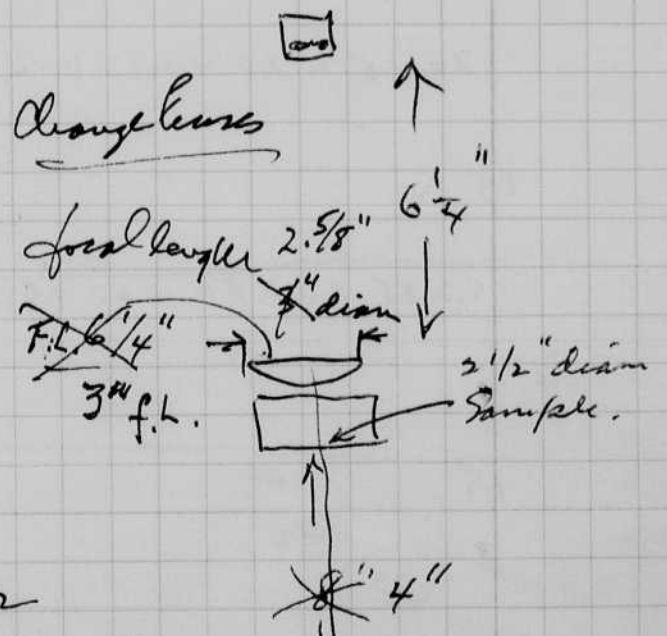 Change lenses
6 1/4"
focal length 2 5/8"
3" diam
F.L. 6 1/4"
3" f.L.
2 1/2" diam
Sample.
8" 4"